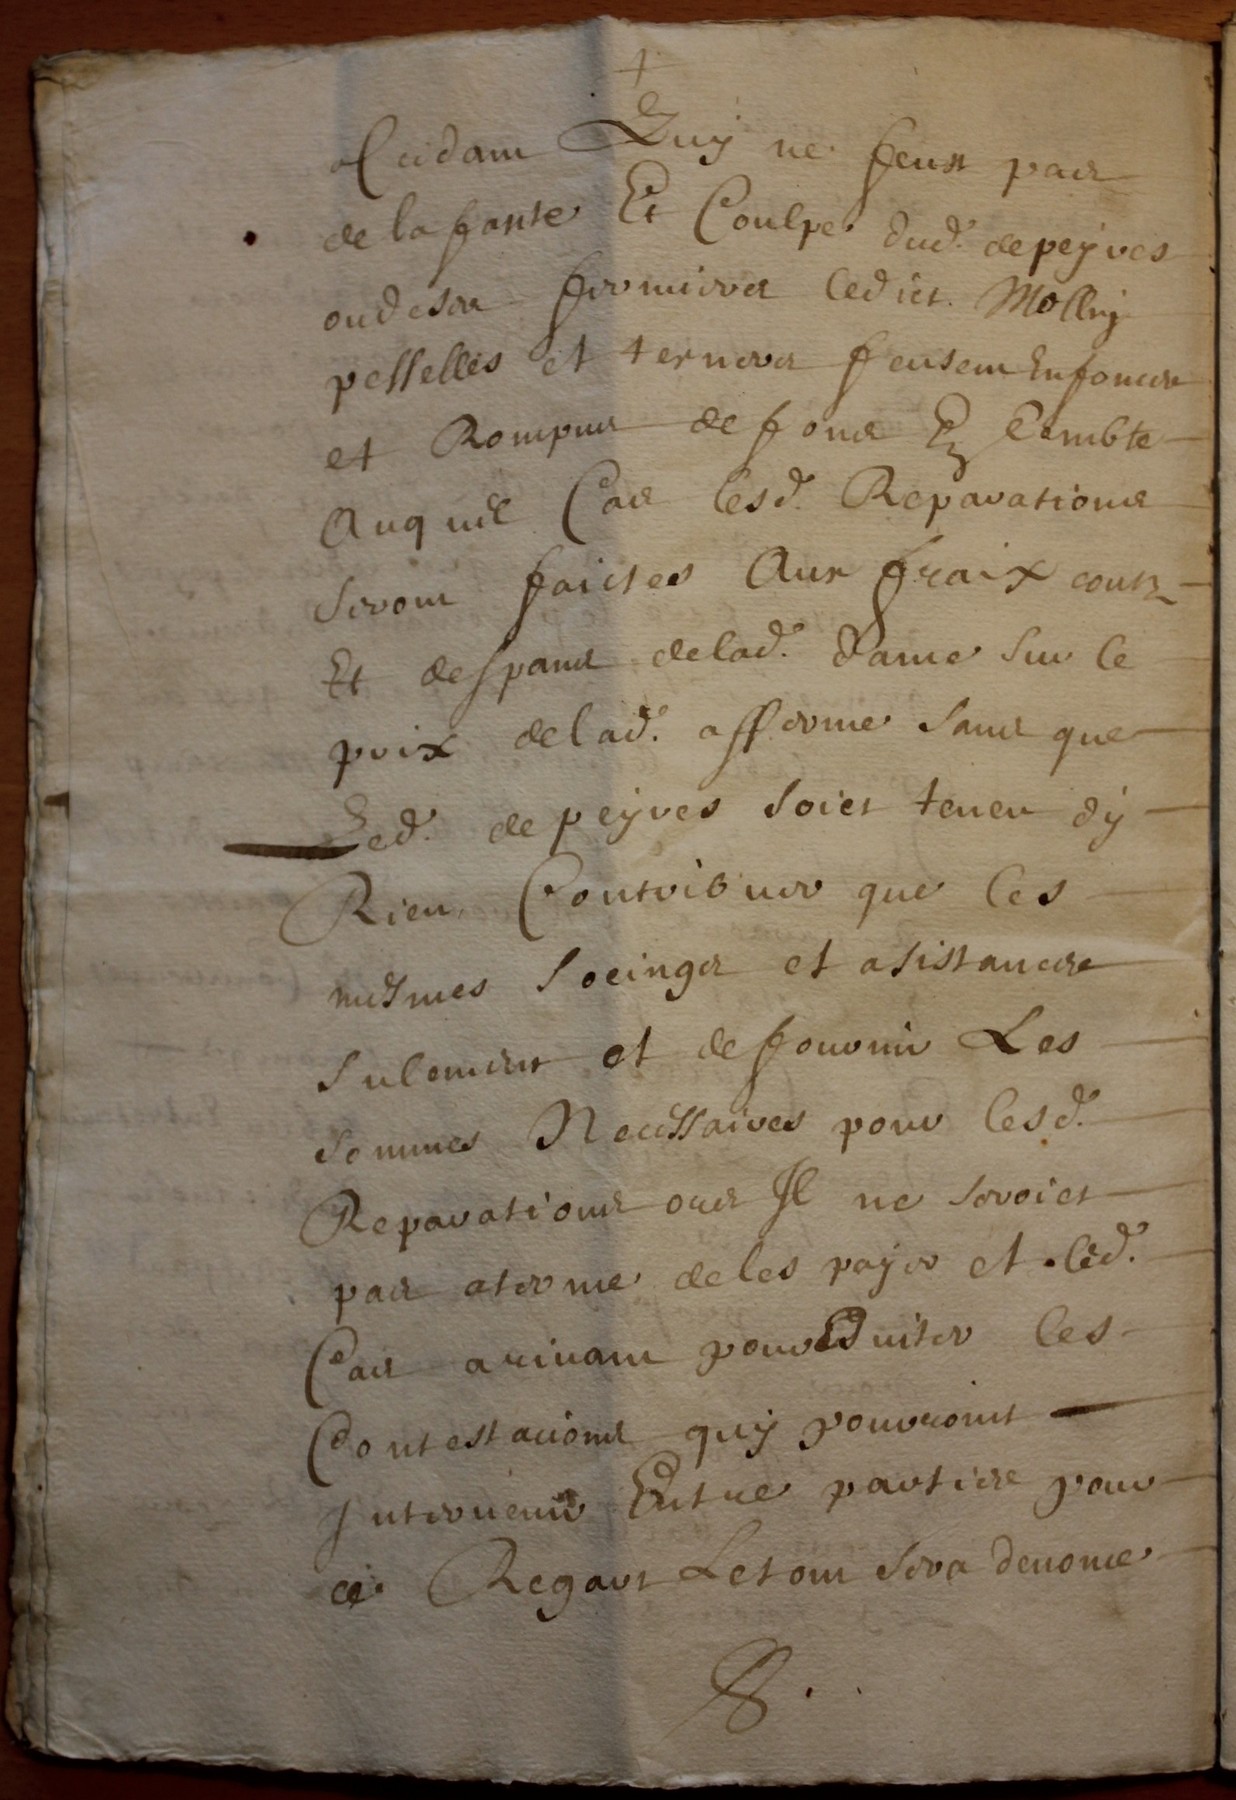 +
accidant Quy ne feust pas
de la fante Et Coulpe dud. de peyves
ou de ser fermiers ledict Mollin
pesselles et terneres feusent Enfonces
et Rompus de fons E Comble
Auquel Cas lesd. Reparations
seront faictes Aux fraix coutz
Et despans de lad. dame sur le
prix de lad. afferme sans que
Led. de peyves soiet teneu dy
Rien Contribuer que les
mesmes soeinger et asistances
sulement et de fournir Les
sommes Necessaires pour lesd.
Reparations ores Il ne seroiet
pas aterme de les payer et led.
Cas arivant pour Eviter les
Contestacions quy pouroint
Intervenir Entre parties pour
ce Regart Le tout sera denonce